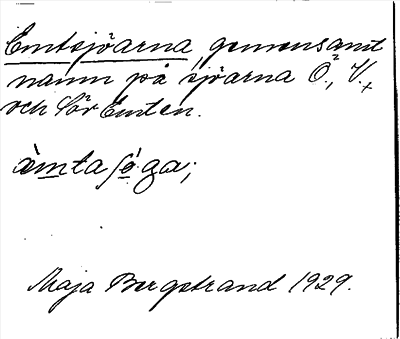 Emtsjöarna gemensamt
namn på sjöarna Ö., V.
och Sör Emten.
Maja Bergstrand 1929.